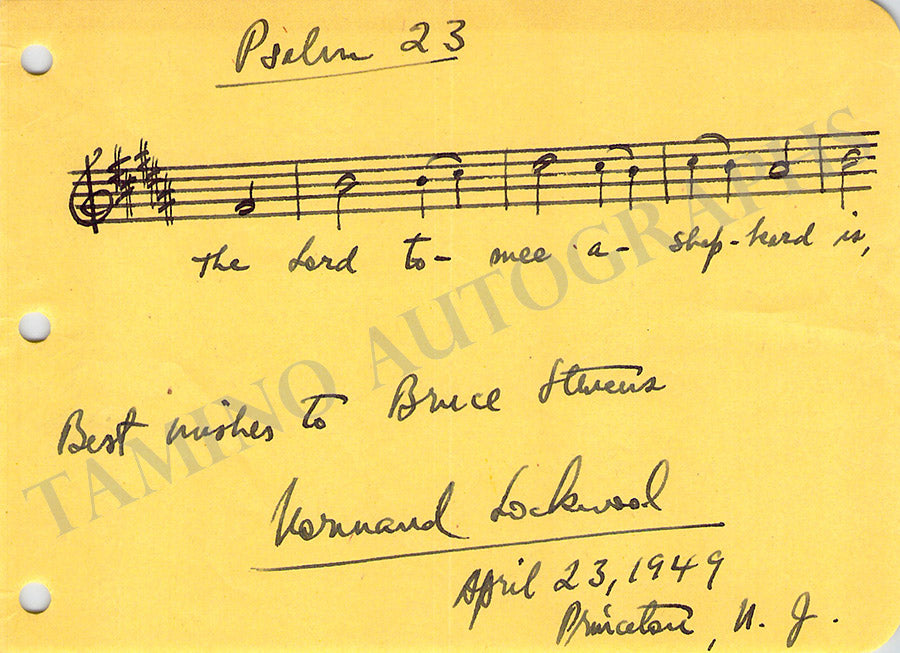 Psalm 23
The Lord to- mee a- shep-herd is,
Best wishes to Bruce Stevens
Normand Lockwood
April 23, 1949
Princeton, N. J.
TAMINO AUTOGRAPHS